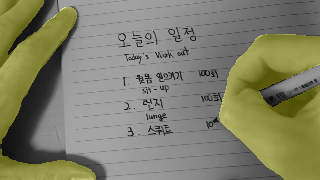 오늘의 일정
Today's Work out
1. 윗몸 일으키기 100회
sit-up
2. 런지 100회
lunge
3. 스쿼트 10